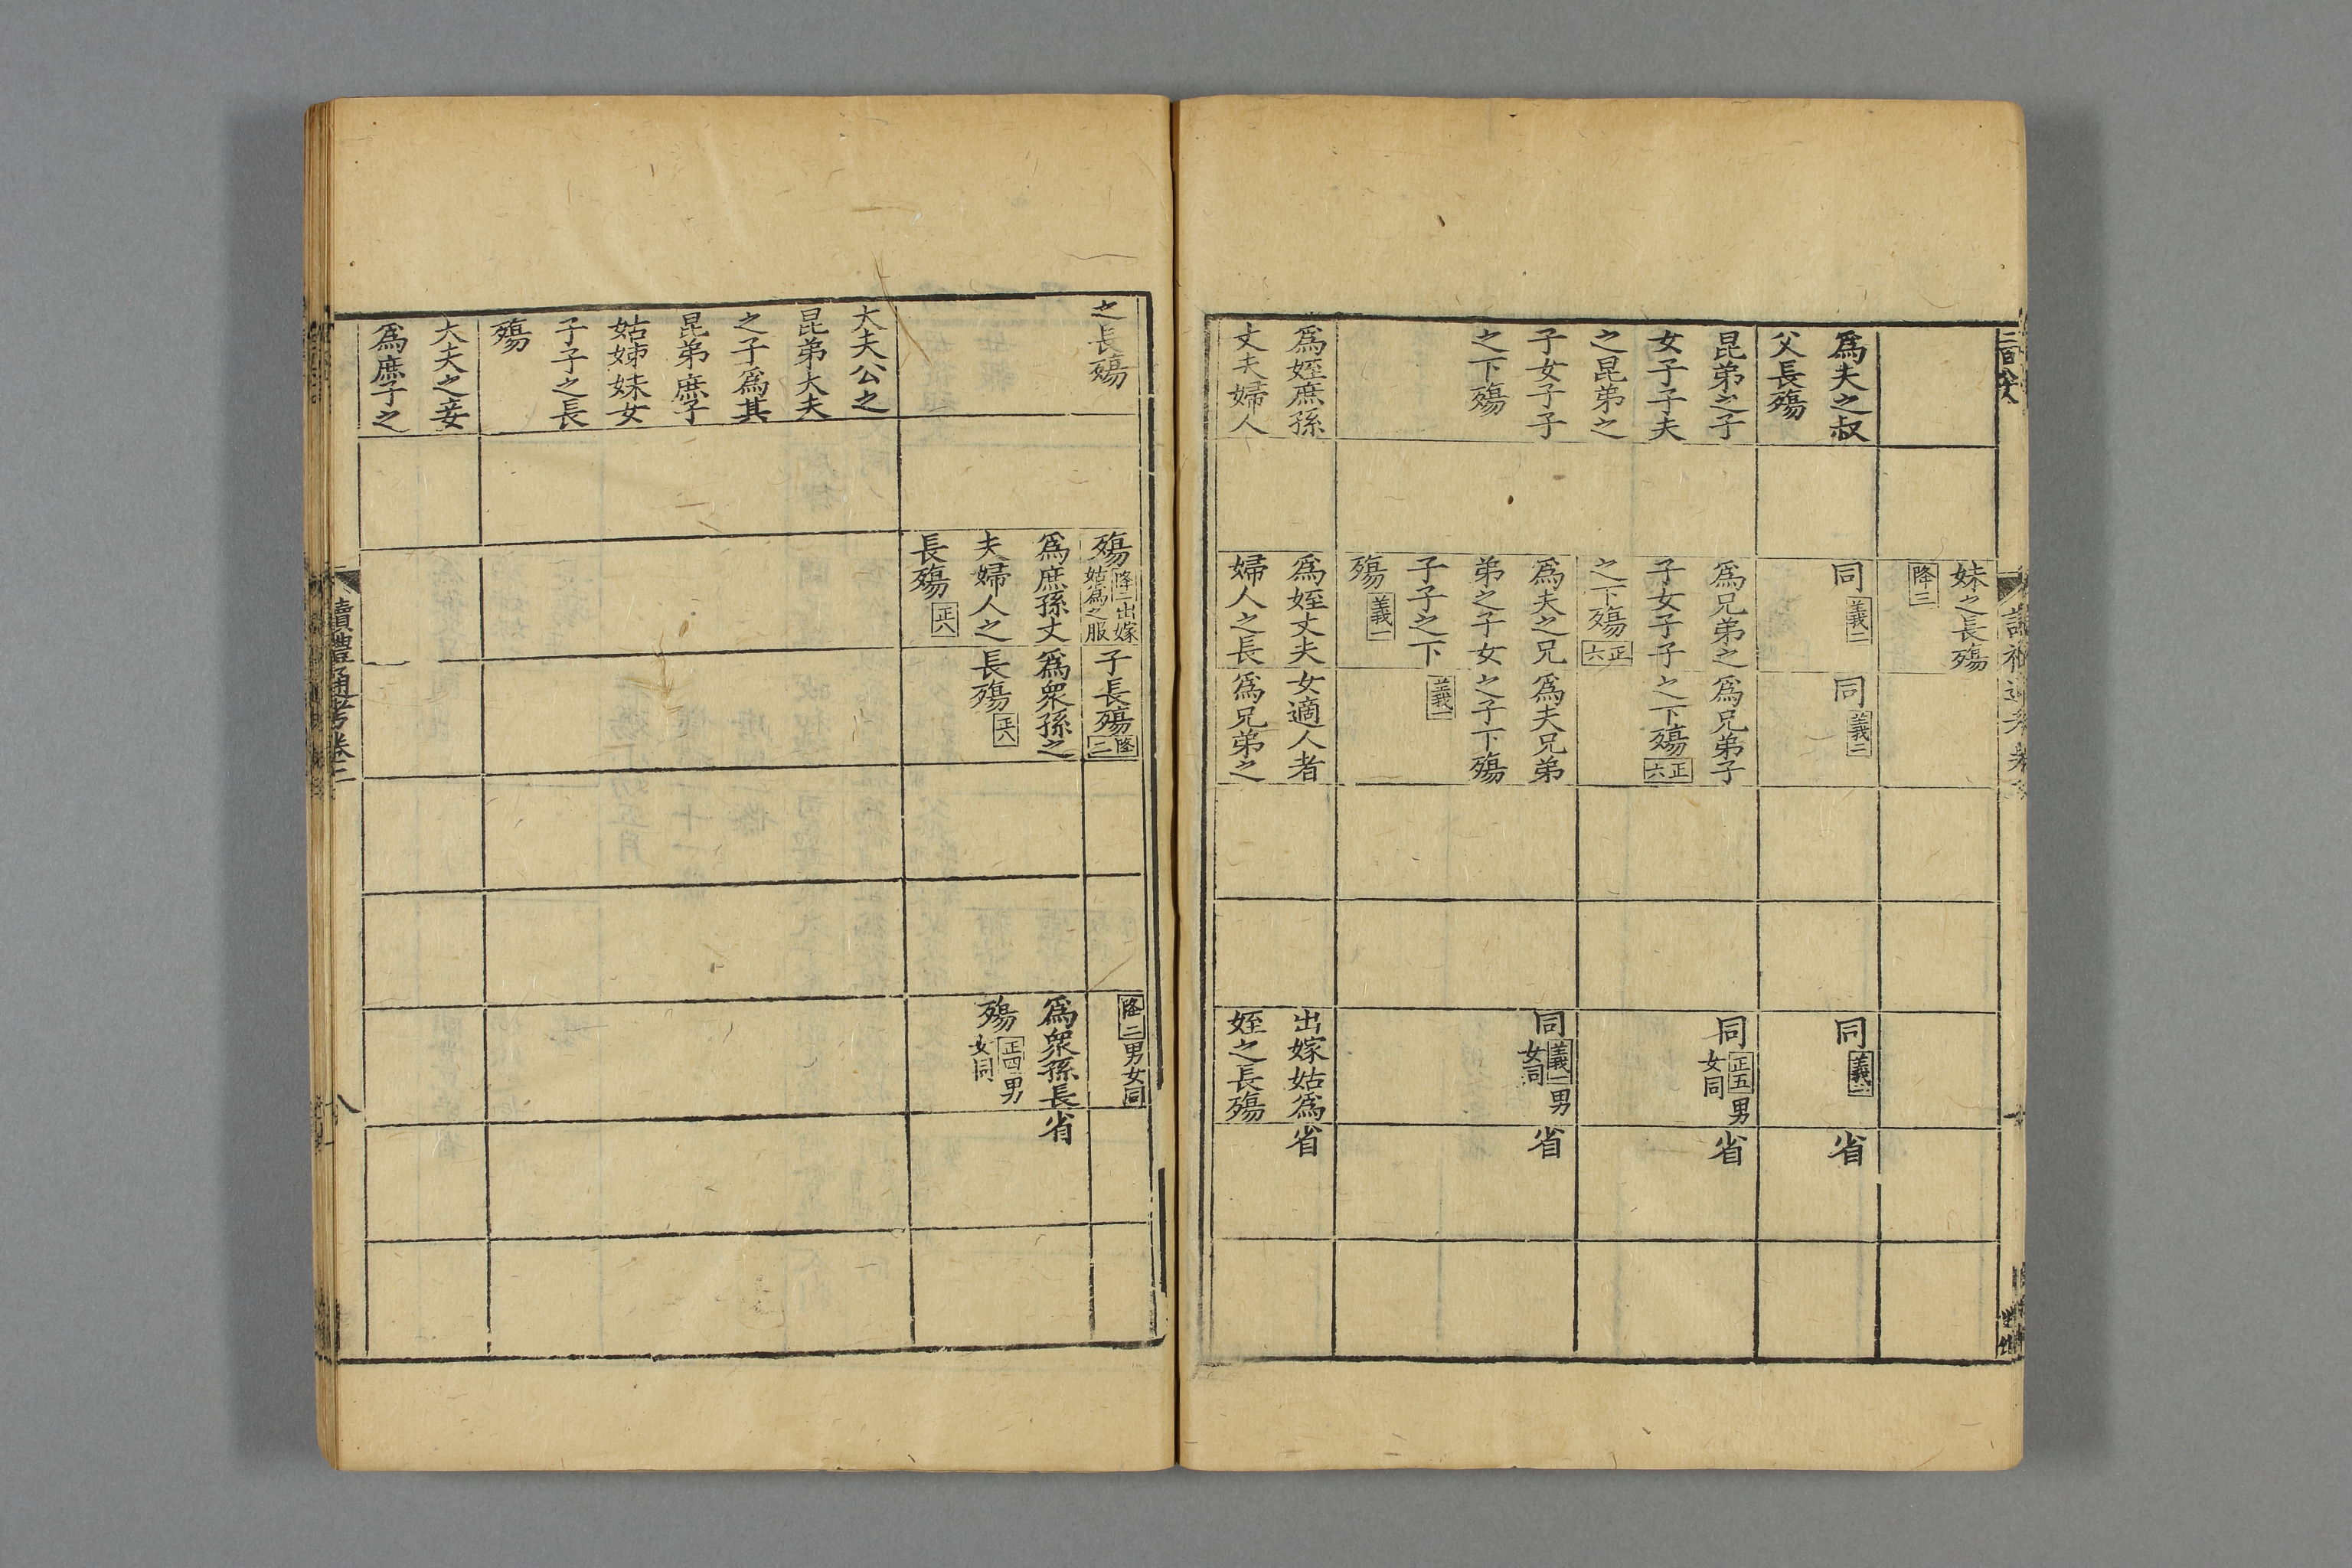 妹之長殤
降三
爲夫之叔
父長殤
同 義二
同 義二
同 義二
省
昆弟之子
女子子夫
之昆弟之
子女子子
之下殤
爲兄弟之
子女子子
之下殤 正六
爲兄弟子
之下殤 正六
同 正五 男
女同
省
爲夫之兄
弟之子女
子子之下
殤 義一
爲夫兄弟
之子下殤
義一
同 義一 男
女同
省
爲姪庶孫
丈夫婦人
爲姪丈夫
婦人之長
女適人者
爲兄弟之
出嫁姑爲
姪之長殤
省
之長殤
殤 降二 出嫁
姑爲之服
子長殤 降二
降二 男女同
爲庶孫丈
夫婦人之
長殤 正八
爲衆孫之
長殤 正八
爲衆孫長
殤 正四 男
女同
省
大夫公之
昆弟大夫
之子爲其
昆弟庶子
姑姊妹女
子子之長
殤
大夫之妾
爲庶子之
讀禮通考卷三
八